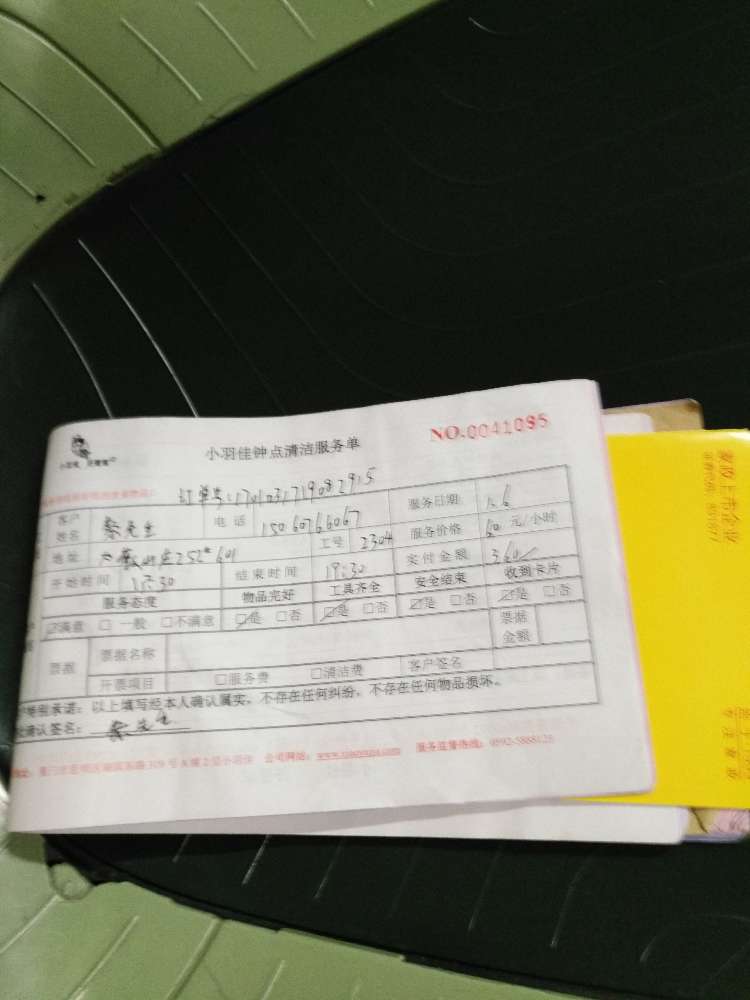 小羽佳钟点清洁服务单
NO.0041095
订单号:1701031719082915
客户姓名 蔡先生 电话 15060766067 服务日期 1.6
地址 252#601 工号 2304 服务价格 60 元/小时
开始时间 13:30 结束时间 19:30 实付金额 360
服务态度 物品完好 工具齐全 安全结束 收到卡片
☑满意 □一般 □不满意 ☑是 □否 ☑是 □否 ☑是 □否 ☑是 □否
票据 票据名称 票据金额
开票项目 □服务费 □清洁费 客户签名
特别承诺：以上填写经本人确认属实，不存在任何纠纷，不存在任何物品损坏。
确认签名： 蔡先生
公司网站： 服务监督热线：0592-5888125